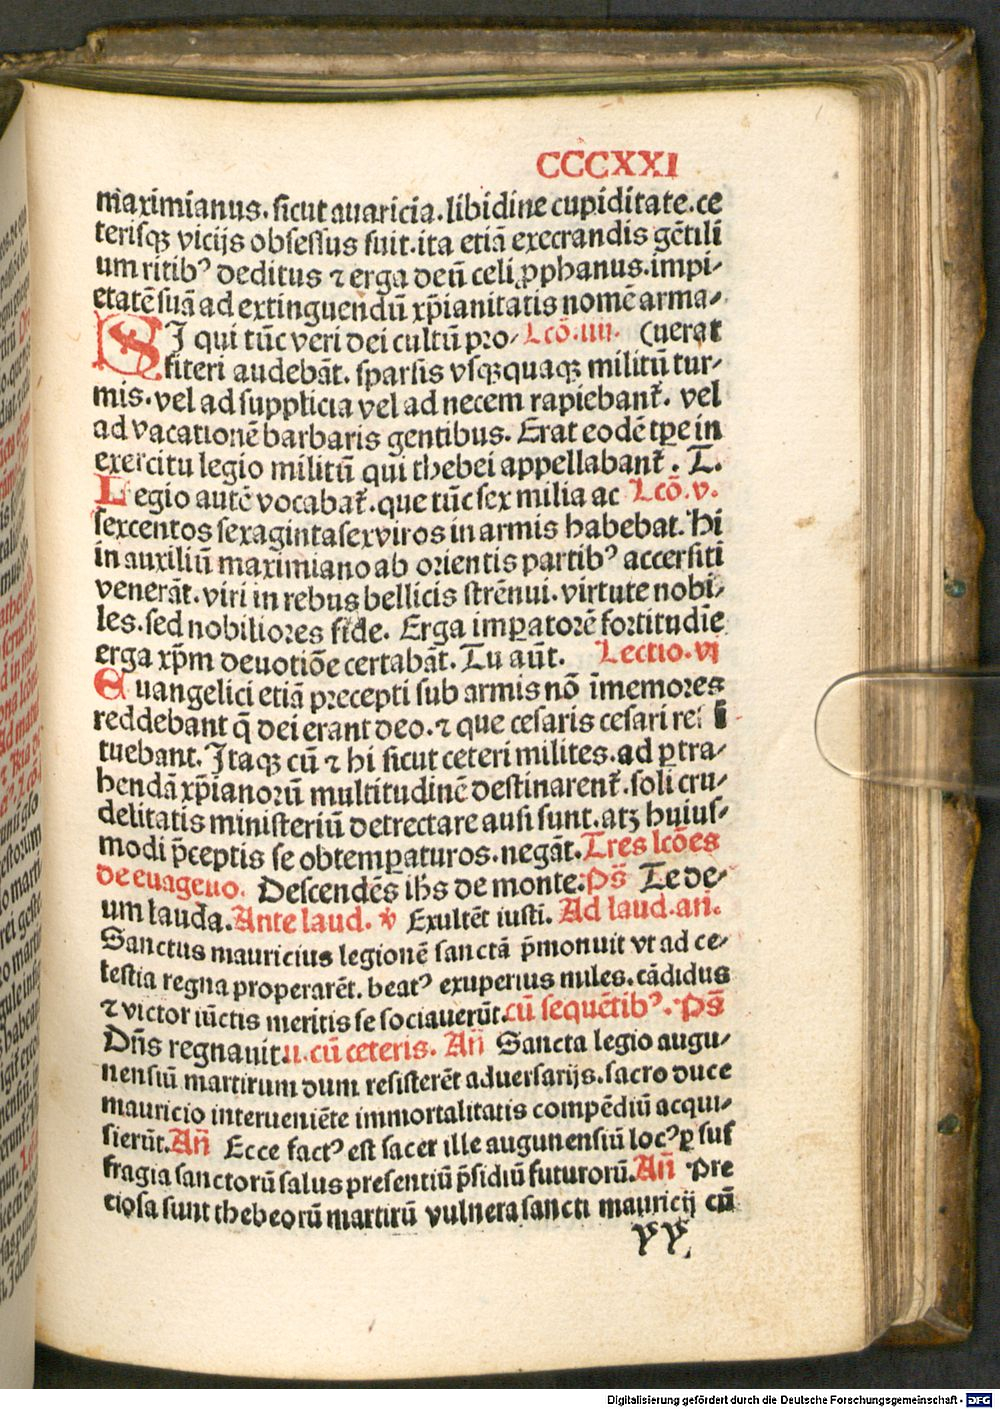 CCCXXI
maximianus. sicut auaricia. libidine cupiditate. ce
terisqꝫ vicijs obsessus fuit. ita etiā execrandis gētili
um ritibꝰ deditus ⁊ erga deū celi ꝓphanus. impi⸗
etatē suā ad extinguendū xp̄ianitatis nomē arma⸗
SI qui tūc veri dei cultū pro⸗ Lcō.iiii. (uerat
fiteri audebāt. sparsis vsqꝫquaqꝫ militū tur⸗
mis. vel ad supplicia vel ad necem rapiebant̄. vel
ad vacationē barbaris gentibus. Erat eodē tꝑe in
exercitu legio militū qui thebei appellabant̄. T.
Legio autē vocabat̄. que tūc sex milia ac Lcō.v.
sexcentos sexaginta sex viros in armis habebat. Hi
in auxiliū maximiano ab orientis partibꝰ accersiti
venerāt. viri in rebus bellicis strēnui. virtute nobi⸗
les. sed nobiliores fide. Erga imꝑatorē fortitudīe
erga xp̄m deuotiōe certabāt. Tu aūt. Lectio.vi
Euangelici etiā precepti sub armis nō īmemores
reddebant q̄ dei erant deo. ⁊ que cesaris cesari re
tuebant. Itaqꝫ cū ⁊ hi sicut ceteri milites. ad ꝑtra⸗
hendā xp̄ianorū multitudinē destinarent̄. soli cru⸗
delitatis ministeriū detrectare ausi sunt. atꝫ huius⸗
modi p̄ceptis se obtemꝑaturos. negāt. Tres lcōes
de euāgelio. Descendēs ihs de monte. Ps̄ Te de⸗
um lauda. Ante laud. ꝟ Exultēt iusti. Ad laud. an̄.
Sanctus mauricius legionē sanctā p̄monuit vt ad ce⸗
lestia regna properarēt. beatꝰ exuperius miles. cādidus
⁊ victor iūctis meritis se sociauerūt. cū sequētibꝰ. Ps̄
Dn̄s regnauit. u. cū ceteris. An̄ Sancta legio augu⸗
nensiū martirum dum resisterēt aduersarijs. sacro duce
mauricio interueniēte immortalitatis compēdiū acqui⸗
sierūt. An̄ Ecce factꝰ est sacer ille augunensiū locꝰ ꝑ suf
fragia sanctorū salus presentiū p̄sidiū futurorū. An̄ Pre
ciosa sunt thebeorū martirū vulnera sancti mauricij cū
pp
Digitalisierung gefördert durch die Deutsche Forschungsgemeinschaft - DFG